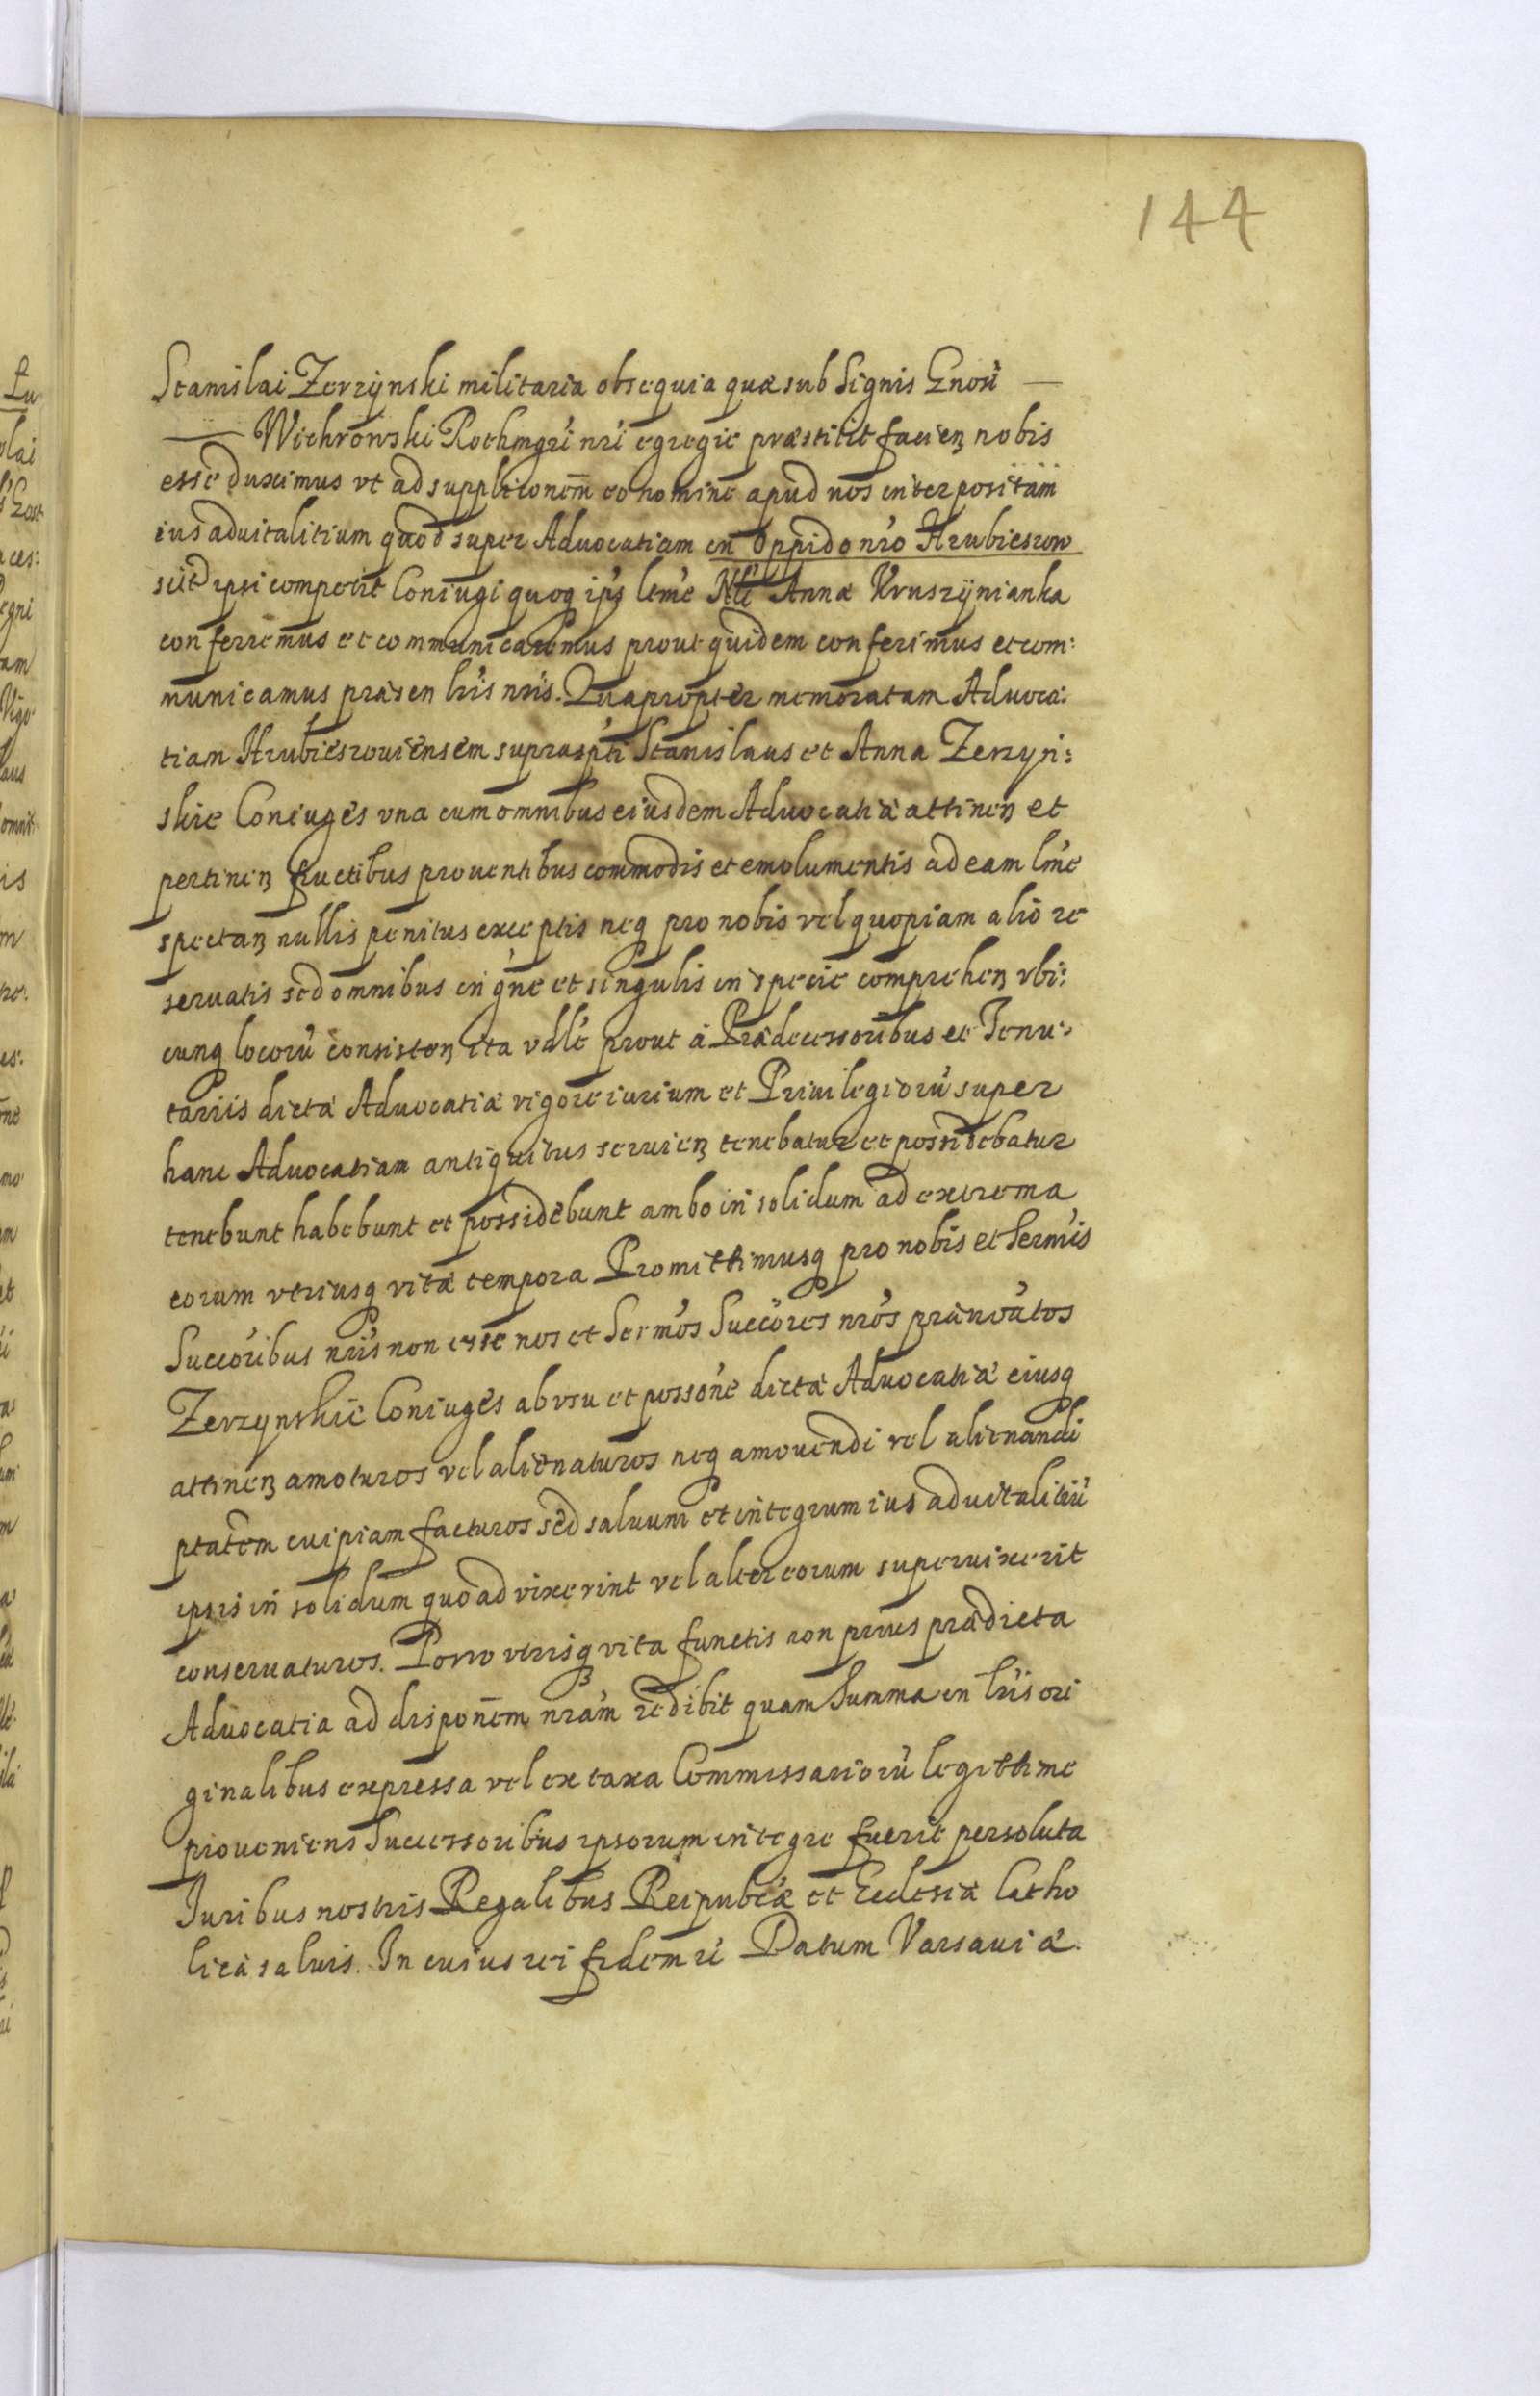 144
Stanislai Zerzynski militaria obsequia quæ sub Signis Gnosi —
— Wichrowski Rothmgri nri egregie præstitit facien nobis
esse duximus vt ad supplicionem eo nomine apud nos interpositam
ius aduitalitium quod super Aduocatiam in Oppido nro Hrubieszow
sitd ipsi competit Coniugi quoq ips leme Nli Annæ Kruszynianka
conferremus et communicaremus prout quidem conferimus et com:
municamus præsen lris nris. Quapropter memoratam Aduoca:
tiam Hrubieszouiensem supraspti Stanislaus et Anna Zerzyn:
skie Coniuges vna cum omnibus eiusdem Aduocatiæ attinen et
pertinen fructibus prouentibus commodis et emolumentis ad eam lme
spectan nullis penitus exceptis neq pro nobis vel quopiam alio re
seruatis sed omnibus in gne et singulis in specie comprehen vbi:
cunq locoru consisten ita vdle prout à Prædecessoribus et Tenu:
tariis dictæ Aduocatiæ vigore iurium et Priuilegioru super
hanc Aduocatiam antiquitus seruien tenebatur et possidebatur
tenebunt habebunt et possidebunt ambo in solidum ad extrema
eorum vtriusq vitæ tempora Promittimusq pro nobis et Sermis
Succoribus nris non esse nos et Sermos Succores nros prænoatos
Zerzynskie Coniuges ab vsu et possone dictæ Aduocatiæ eiusq
attinen amoturos vel alienaturos neq amouendi vel alienandi
ptatem cuipiam facturos sed saluum et integrum ius aduitalitiu
ipsis in solidum quoad vixerint vel alter eorum superuixerit
conseruaturos. Porro vtrisq vita functis non prius prædicta
Aduocatia ad disponem nram redibit quam Summa in lris ori
ginalibus expressa vel ex taxa Commissarioru legittime
proueniens Successoribus ipsorum integre fuerit persoluta
Iuribus nostris Regalibus Reipublicæ et Ecclesiæ Catho
licæ saluis. In cuius rei fidem rè Datum Varsauiæ.